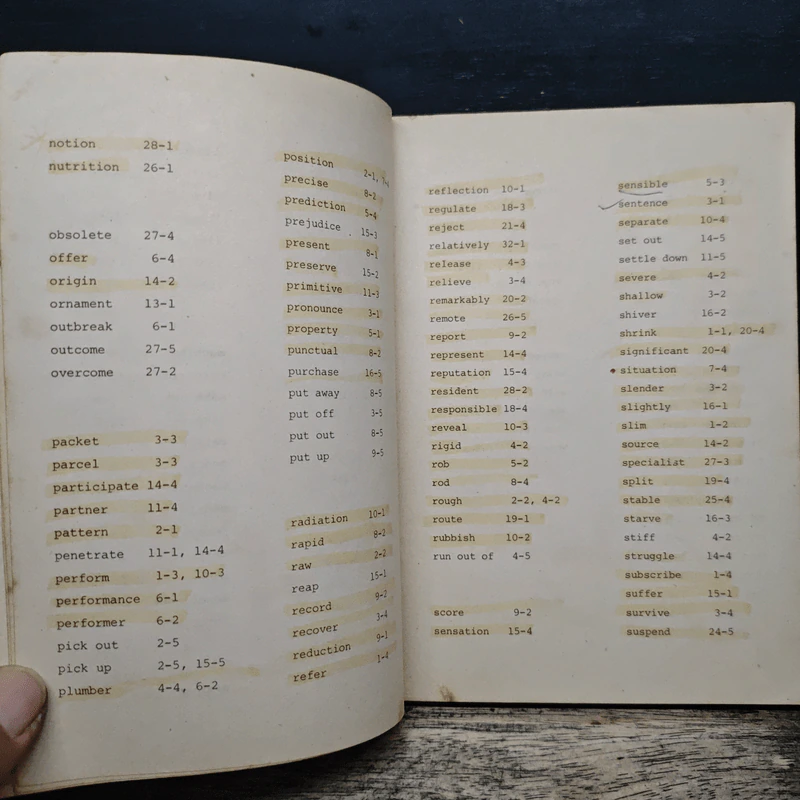 notion 28-1
nutrition 26-1
obsolete 27-4
offer 6-4
origin 14-2
ornament 13-1
outbreak 6-1
outcome 27-5
overcome 27-2
packet 3-3
parcel 3-3
participate 14-4
partner 11-4
pattern 2-1
penetrate 11-1, 14-4
perform 1-3, 10-3
performance 6-1
performer 6-2
pick out 2-5
pick up 2-5, 15-5
plumber 4-4, 6-2
position 2-1,
precise 8-2
prediction 5-4
prejudice 15-3
present 8-1
preserve 15-2
primitive 11-3
pronounce 3-1
property 5-1
punctual 8-2
purchase 16-5
put away 8-5
put off 3-5
put out 8-5
put up 9-5
radiation 10-1
rapid 8-2
raw 2-2
reap 15-1
record 9-2
recover 3-4
reduction 9-1
refer 1-4
reflection 10-1
regulate 18-3
reject 21-4
relatively 32-1
release 4-3
relieve 3-4
remarkably 20-2
remote 26-5
report 9-2
represent 14-4
reputation 15-4
resident 28-2
responsible 18-4
reveal 10-3
rigid 4-2
rob 5-2
rod 8-4
rough 2-2, 4-2
route 19-1
rubbish 10-2
run out of 4-5
score 9-2
sensation 15-4
sensible 5-3
sentence 3-1
separate 10-4
set out 14-5
settle down 11-5
severe 4-2
shallow 3-2
shiver 16-2
shrink 1-1, 20-4
significant 20-4
situation 7-4
slender 3-2
slightly 16-1
slim 1-2
source 14-2
specialist 27-3
split 19-4
stable 25-4
starve 16-3
stiff 4-2
struggle 14-4
subscribe 1-4
suffer 15-1
survive 3-4
suspend 24-5